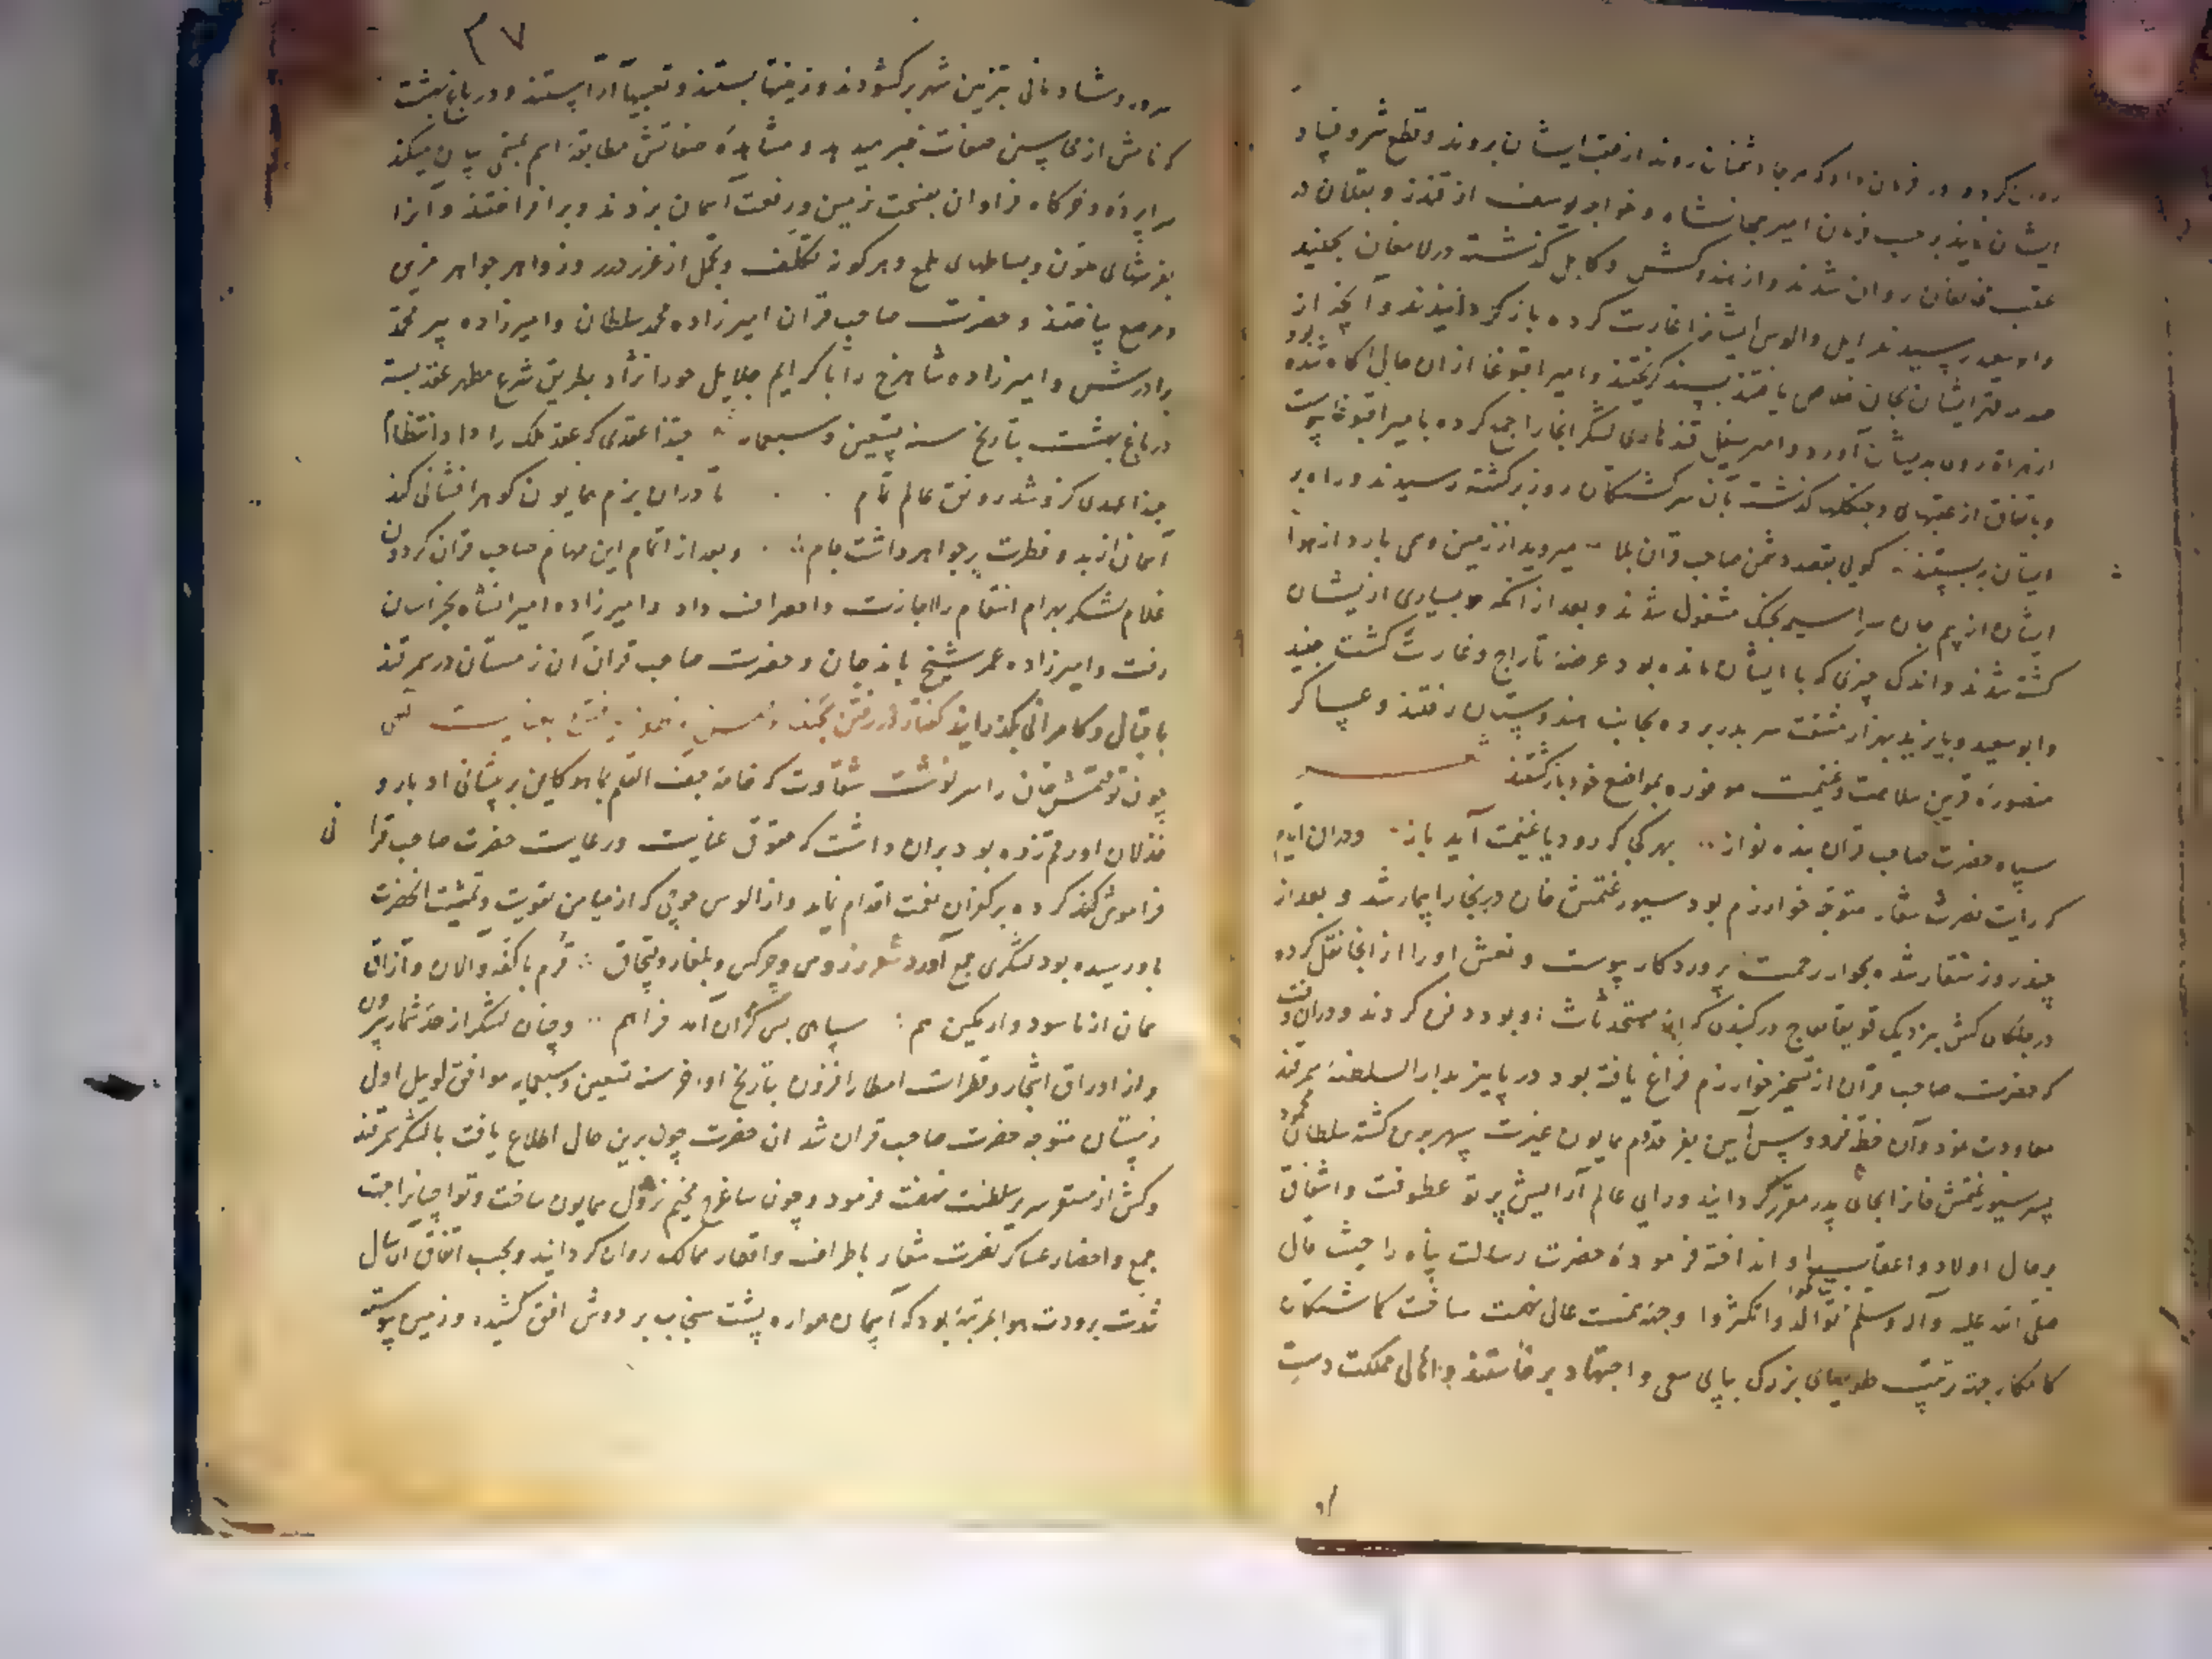 روان کرد و فرمان داد که هر جا دشمنان روند از عقب ایشان بروند و قطع شر و فساد
ایشان نمایند بر حسب فرمان امیر جهانشاه و خواجه یوسف از قندز و بغلان در
عقب مخالفان روان شدند و از هندوکش و کابل گذشته در لامغان بجلید
و ابوسعید رسیدند ایل و الوس ایشانرا غارت کرده باز گردانیدند و آنچه از
ایشان بجان خلاص یافتند بسند گریختند و امیر اقبوغا از ان حال اگاه شده بود
از هراة روی بدیشان آورد و امیر سیفل قندهاری لشکر انجا را جمع کرده با میر اقبوغا پیوست
و باتفاق از عقبهای و جنگلها گذشته بآن سرگشتگان روز برگشته رسیدند و راه بر
ایشان ببستند گویی بقصد دشمن صاحب قران بلا میروید از زمین و می بارد از هوا
ایشان از بیم جان سراسیمه بجنگ مشغول شدند و بعد از انکه بسیاری از یشان
کشته شدند و اندک چیزی که با ایشان مانده بود عرضهٔ تاراج و غارت گشت جنید
و ابوسعید و بایزید بهزار مشقت سر بدر برده بجانب هندوستان رفتند و عساکر
منصوره قرین سلامت و غنیمت موفوره بمواضع خود بازگشتند شعر
سپاه حضرت صاحب قران بنده نواز بهر کجا که رود با غنیمت آید باز و دران ایام
که رایت نصرت شعار متوجه خوارزم بود سیورغتمش خان در بخارا بیمار شد و بعد از
چند روز شنقار شده بجوار رحمت پروردگار پیوست و نعش او را از انجا نقل کرده
در جلگای کش بنزدیک قویقاماج در گنبدی که از مستحدثات او بود دفن کردند و دران وقت
که حضرت صاحب قران از تسخیر خوارزم فراغ یافته بود در پاییز بدار السلطنهٔ سمرقند
معاودت نمود و آن خطهٔ فردوس آیین بفر قدوم همایون غیرت سپهر برین گشته سلطان محمود
پسر سیورغتمش خانرا بجای پدر مقرر گردانید و رای عالم آرایش پرتو عطوفت و اشفاق
بر حال اولاد و اعقاب او انداخته فرمودهٔ حضرت رسالت پناه را حیث قال
صلی الله علیه و آله و سلم توالدوا تکثروا وجههٔ همت عالی نهمت ساخت گماشتگان
کامکار جهة ترتیب طویهای بزرگ بپای سعی و اجتهاد برخاستند و اهالی مملکت دست
۳۷
سرور و شادمانی بتزیین شهر برگشودند و زینتها بستند و تعبیها آراستند و در باغ بهشت
که نامش از محاسن صفات خبر میدهد و مشاهدهٔ صفاتش مطابقهٔ اسم بمسمی بیان میکند
سراپرده و خرگاه فراوان بفسحت زمین و رفعت آسمان بزدند و برافراختند و آنرا
بفرشهای ملون و بساطهای ملمع و هر گونه تکلف و تجمل از غرر درر و زواهر جواهر مزین
و مرصع ساختند و حضرت صاحب قران امیرزاده محمد سلطان و امیرزاده پیر محمد
برادرش و امیرزاده شاهرخ را با کرایم جلایل حورا نژاد بطریق شرع مطهر عقد بسته
در باغ بهشت بتاریخ سنه تسعین و سبعمایه حبذا عقدی که عقد ملک را داد انتظام
حبذا عهدی کزو شد رونق عالم تمام تا دران بزم همایون گوهر افشانی کند
آسمان از بدو فطرت پر جواهر داشت جام و بعد از اتمام این مهام صاحب قران گردون
غلام لشکر بهرام انتقام را اجازت و انصراف داد و امیرزاده امیرانشاه بخراسان
رفت و امیرزاده عمر شیخ باندجان و حضرت صاحب قران آن زمستان در سمرقند
باقبال و کامرانی بگذرانید گفتار در رفتن
چون توقتمش خان را سرنوشت شقاوت که خامهٔ جف القلم بما هو کاین بر پیشانی ادبار و
خذلان او رقم زده بود بران داشت که حقوق عنایت و رعایت حضرت صاحب قرانی
فراموش کند کرده بر کفران نعمت اقدام نماید و از الوس جوجی که از میامن تقویت و تمشیت انحضرت
باو رسیده بود لشکری جمع آورد شعر ز روس و چرکس و بلغار و قبچاق قرم با کفه و الان و آزاق
سپاهی بس گران آمد فراهم و چنان لشکر از حد شمار بیرون
و از اوراق اشجار و قطرات امطار افزون بتاریخ اواخر سنه تسعین و سبعمایه موافق لوی ئیل اول
زمستان متوجه حضرت صاحب قران شد ان حضرت چون برین حال اطلاع یافت با لشکر سمرقند
و کش از مستقر سریر سلطنت نهضت فرمود و چون ساغرج مخیم نزول همایون ساخت و تواجیانرا جهت
جمع و احضار عساکر نصرت شعار باطراف و اقطار ممالک روان گردانید و بحسب اتفاق آن سال
شدت برودت هوا بمرتبهٔ بود که آسمان همواره پشت سنجاب بر دوش افق کشیده و زمین پیوسته